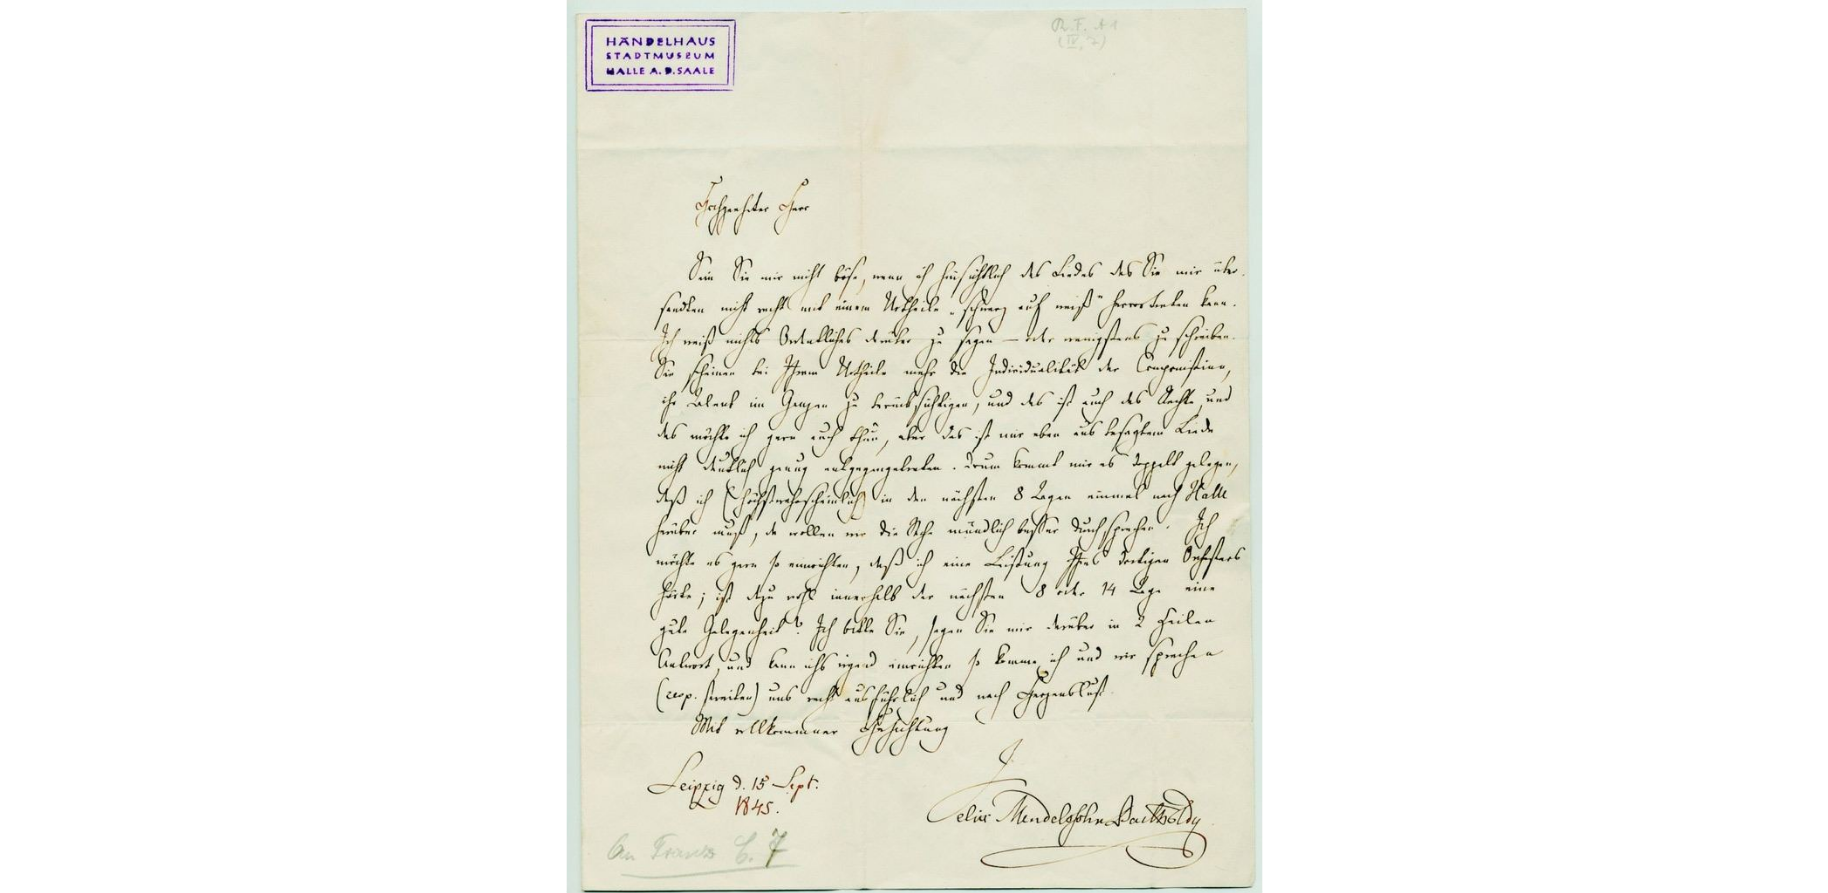 HÄNDELHAUS
STADTMUSEUM
HALLE A. D. SAALE
Hochgeehrter Herr
Sein Sie mir nicht böse, wenn ich hinsichtlich des Liedes das Sie mir über-
sandten nicht recht mit einem Urtheile „schwarz auf weiß" hervortreten kann.
Ich weiß nichts Ordentliches darüber zu sagen — oder wenigstens zu schreiben.
Sie scheinen bei Ihrem Urtheile mehr die Individualität der Componistinn,
ihr Talent im Ganzen zu berücksichtigen, und das ist auch das Rechte, und
das möchte ich gern auch thun, aber das ist mir eben aus besagtem Liede
nicht deutlich genug entgegengetreten. Drum kommt mir es doppelt gelegen,
daß ich (höchstwahrscheinlich) in den nächsten 8 Tagen einmal nach Halle
herüber muß, da wollen wir die Sache mündlich besser durchsprechen. Ich
möchte es gern so einrichten, daß ich eine Leistung Ihres dortigen Orchesters
hörte; ist dazu wohl innerhalb der nächsten 8 oder 14 Tage eine
gute Gelegenheit? Ich bitte Sie, sagen Sie mir darüber in 2 Zeilen
Antwort, und kann ichs irgend einrichten so komme ich und wir sprechen
(resp. streiten) uns recht ausführlich und nach Herzenslust.
Mit vollkommner Hochachtung
Leipzig d. 15 Sept.
1845.
Felix Mendelssohn Bartholdy
An Franz